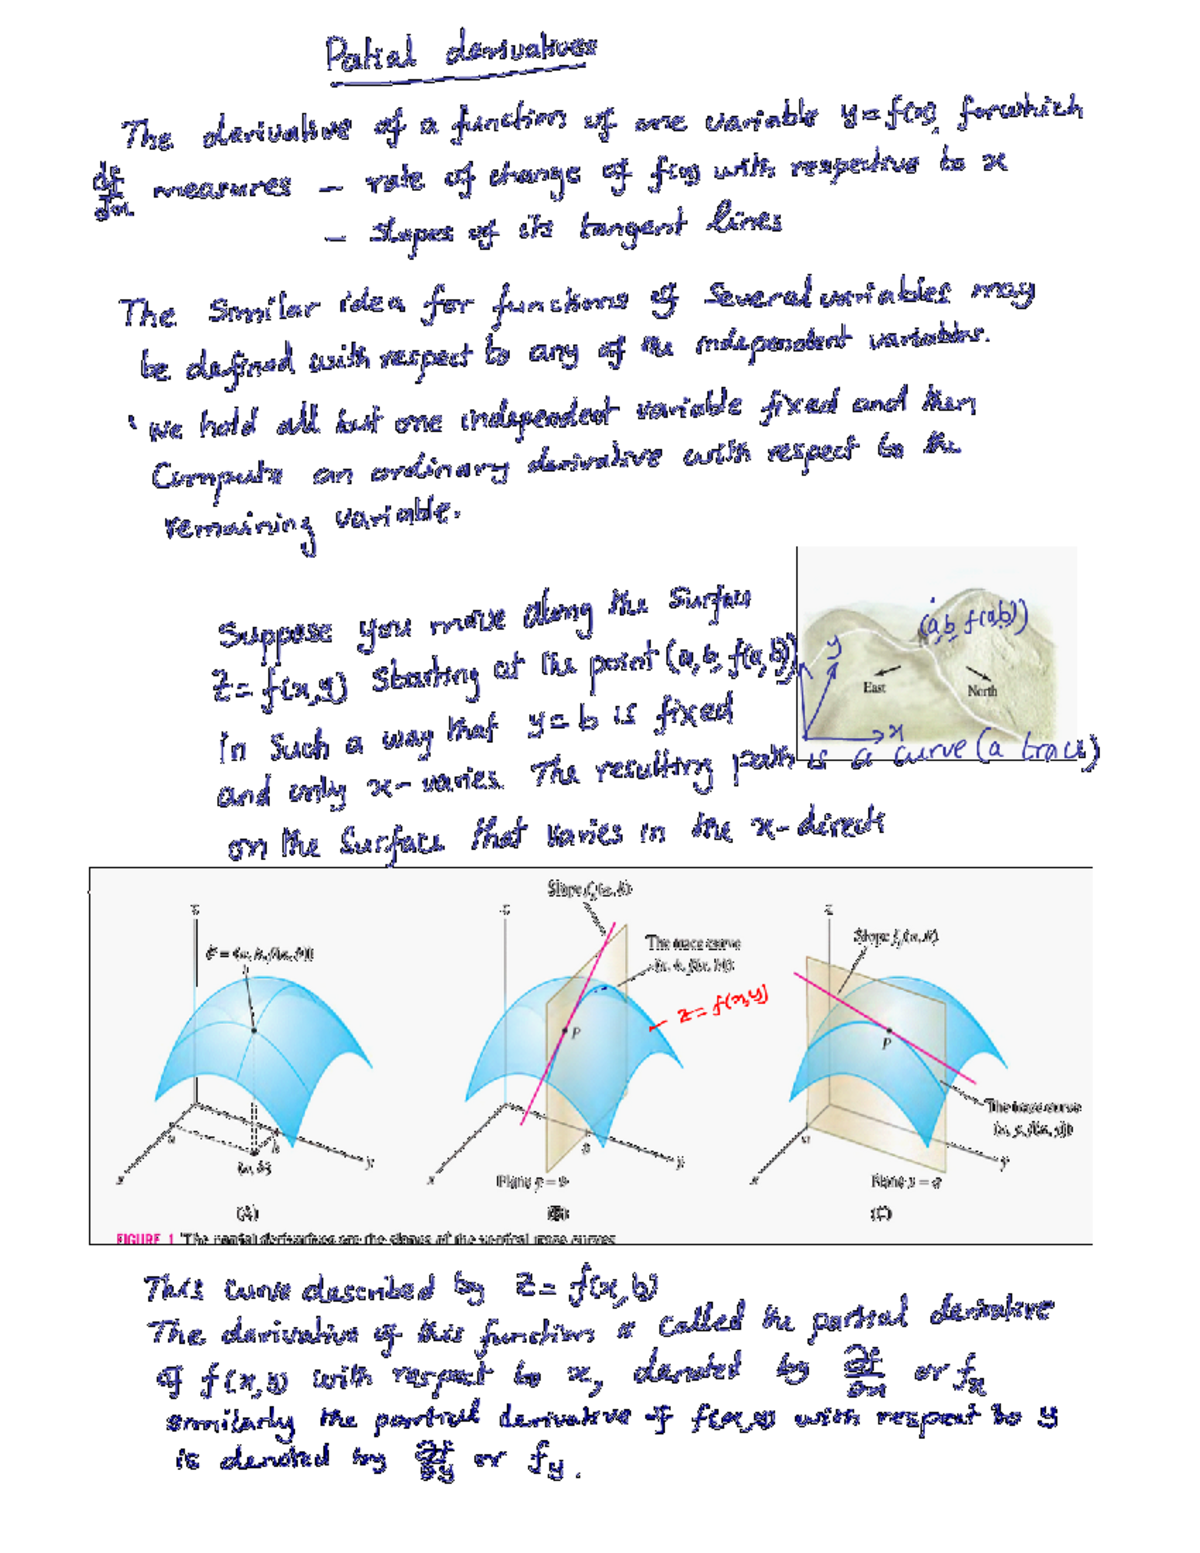 Patial derivatives
The derivative of a function of one variable y = f(x), for which
df/dx measures – rate of change of f(x) with respective to x
– slopes of its tangent lines
The Similar idea for functions of Several variables may
be defined with respect to any of the independent variables.
we hold all but one independent variable fixed and then
Compute an ordinary derivative with respect to the
remaining variable.
Suppose you move along the Surface
Z = f(x,y) Starting at the point (a, b, f(a,b))
in Such a way that y = b is fixed
and only x- varies. The resulting path is a curve (a trace)
on the Surface that varies in the x- directi
(a,b, f(a,b))
y
East
North
x
z
P = (a, b, f(a, b))
a
b
(a, b)
x
y
(A)
Slope fx(a, b)
z
The trace curve
(x, b, f(x, b))
z = f(x,y)
P
b
x
y
Plane y = b
(B)
z
Slope fy(a, b)
P
The trace curve
(a, y, f(a, y))
a
x
y
Plane x = a
(C)
FIGURE 1 The partial derivatives are the slopes of the vertical trace curves
This curve described by Z = f(x, b)
The derivative of this function is called the partial derivative
of f(x, y) with respect to x, denoted by ∂f/∂x or fx
similarly the partial derivative of f(x,y) with respect to y
is denoted by ∂f/∂y or fy.